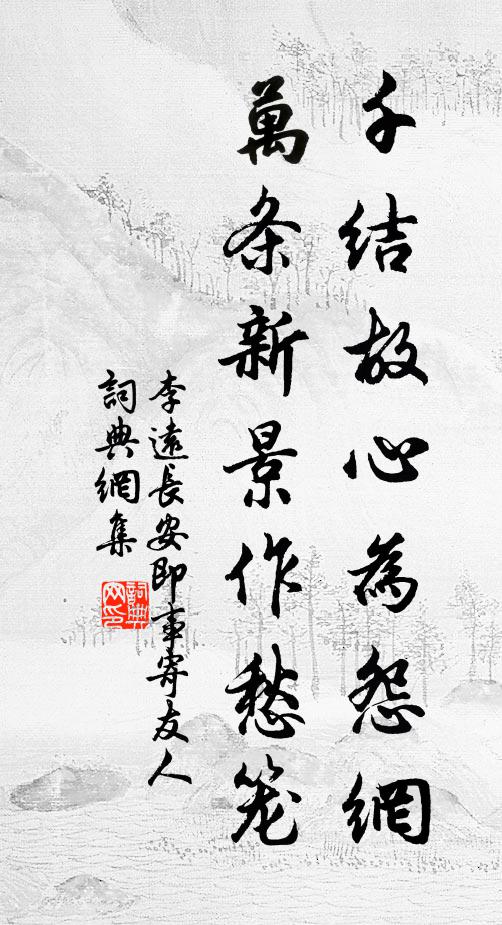 千结故心為怨網
萬条新景作愁笼
李遠長安即事寄友人
詞典網集
詞典网印